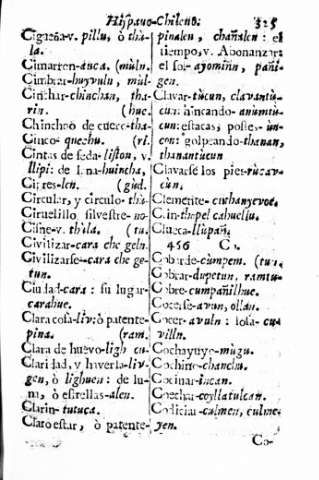 Hispano-Chileno. 325
Cigueña-v. pillu, ò thà-
la.
Cimarron-auca. (mùln.
Cimbrar-huyvuln, mùl-
Cinchar-chinchan, tha-
rin. (hue.
Chinchoò de cuero-tha-
Cinco-quechu. (ri.
Cintas de seda-liston, v.
llipi: de lana-huincha,
Cipres-len. (gùd.
Circular, y circulo-thù-
Ciruelillo silvestre-no-
Cisne-v. thùla. (tu.
Civilizar-cara che geln.
Civilizarse-cara che ge-
tun.
Ciudad-cara: su lugar-
carahue.
Clara cosa-liv: ò patente-
pina. (ram.
Clara de huevo-ligh cu-
Claridad, y hiverla-liv-
gen, ò lighuen: de lu-
na, ò estrellas-alen.
Clarin-tutuca.
Claro estar, ò patente-
pinalen, chañalen: el
tiempo, v. Abonanzar:
el sol-ayomiñn, pañi-
gen.
Clavar-tùcun, clavantù-
cun: hincando-anùmtù-
cun: estacas, postes-ùn-
con: golpeando-thanan,
thanantùcun
Clavarse los pies-rùzav-
cùn.
Clemente-cuchanyevoe.
Clin-thepel cahuellu.
Clueca-llùpañ.
456 C.
Cobarde-cùmpem. (tun,
Cobrar-dupetun, ramtu-
Cobre-cumpañilhue.
Cocerse-avun, ollan.
Cocer-avuln: losa-cu-
villn.
Cochayuyo-mùgu.
Cochino-chanchu.
Cocinar-incan.
Cosecha-coyllatulcan.
Codiciar-culmen, culme-
yen.
Co-